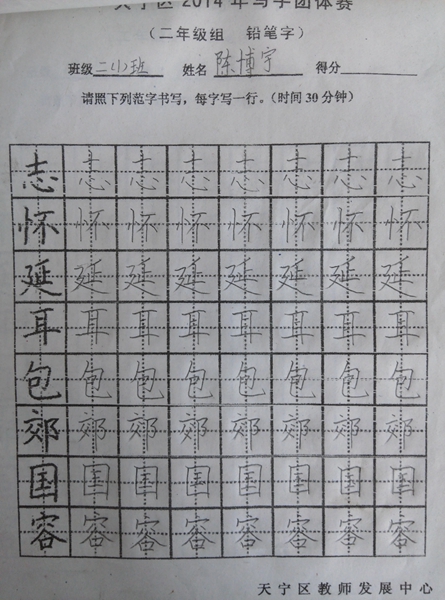 天宁区2014年写字团体赛
（二年级组 铅笔字）
班级 二(1)班 姓名 陈博宇 得分
请照下列范字书写，每字写一行。（时间30分钟）
志 志 志 志 志 志 志 志
怀 怀 怀 怀 怀 怀 怀 怀
延 延 延 延 延 延 延 延
耳 耳 耳 耳 耳 耳 耳 耳
包 包 包 包 包 包 包 包
郊 郊 郊 郊 郊 郊 郊 郊
国 国 国 国 国 国 国 国
容 容 容 容 容 容 容 容
天宁区教师发展中心